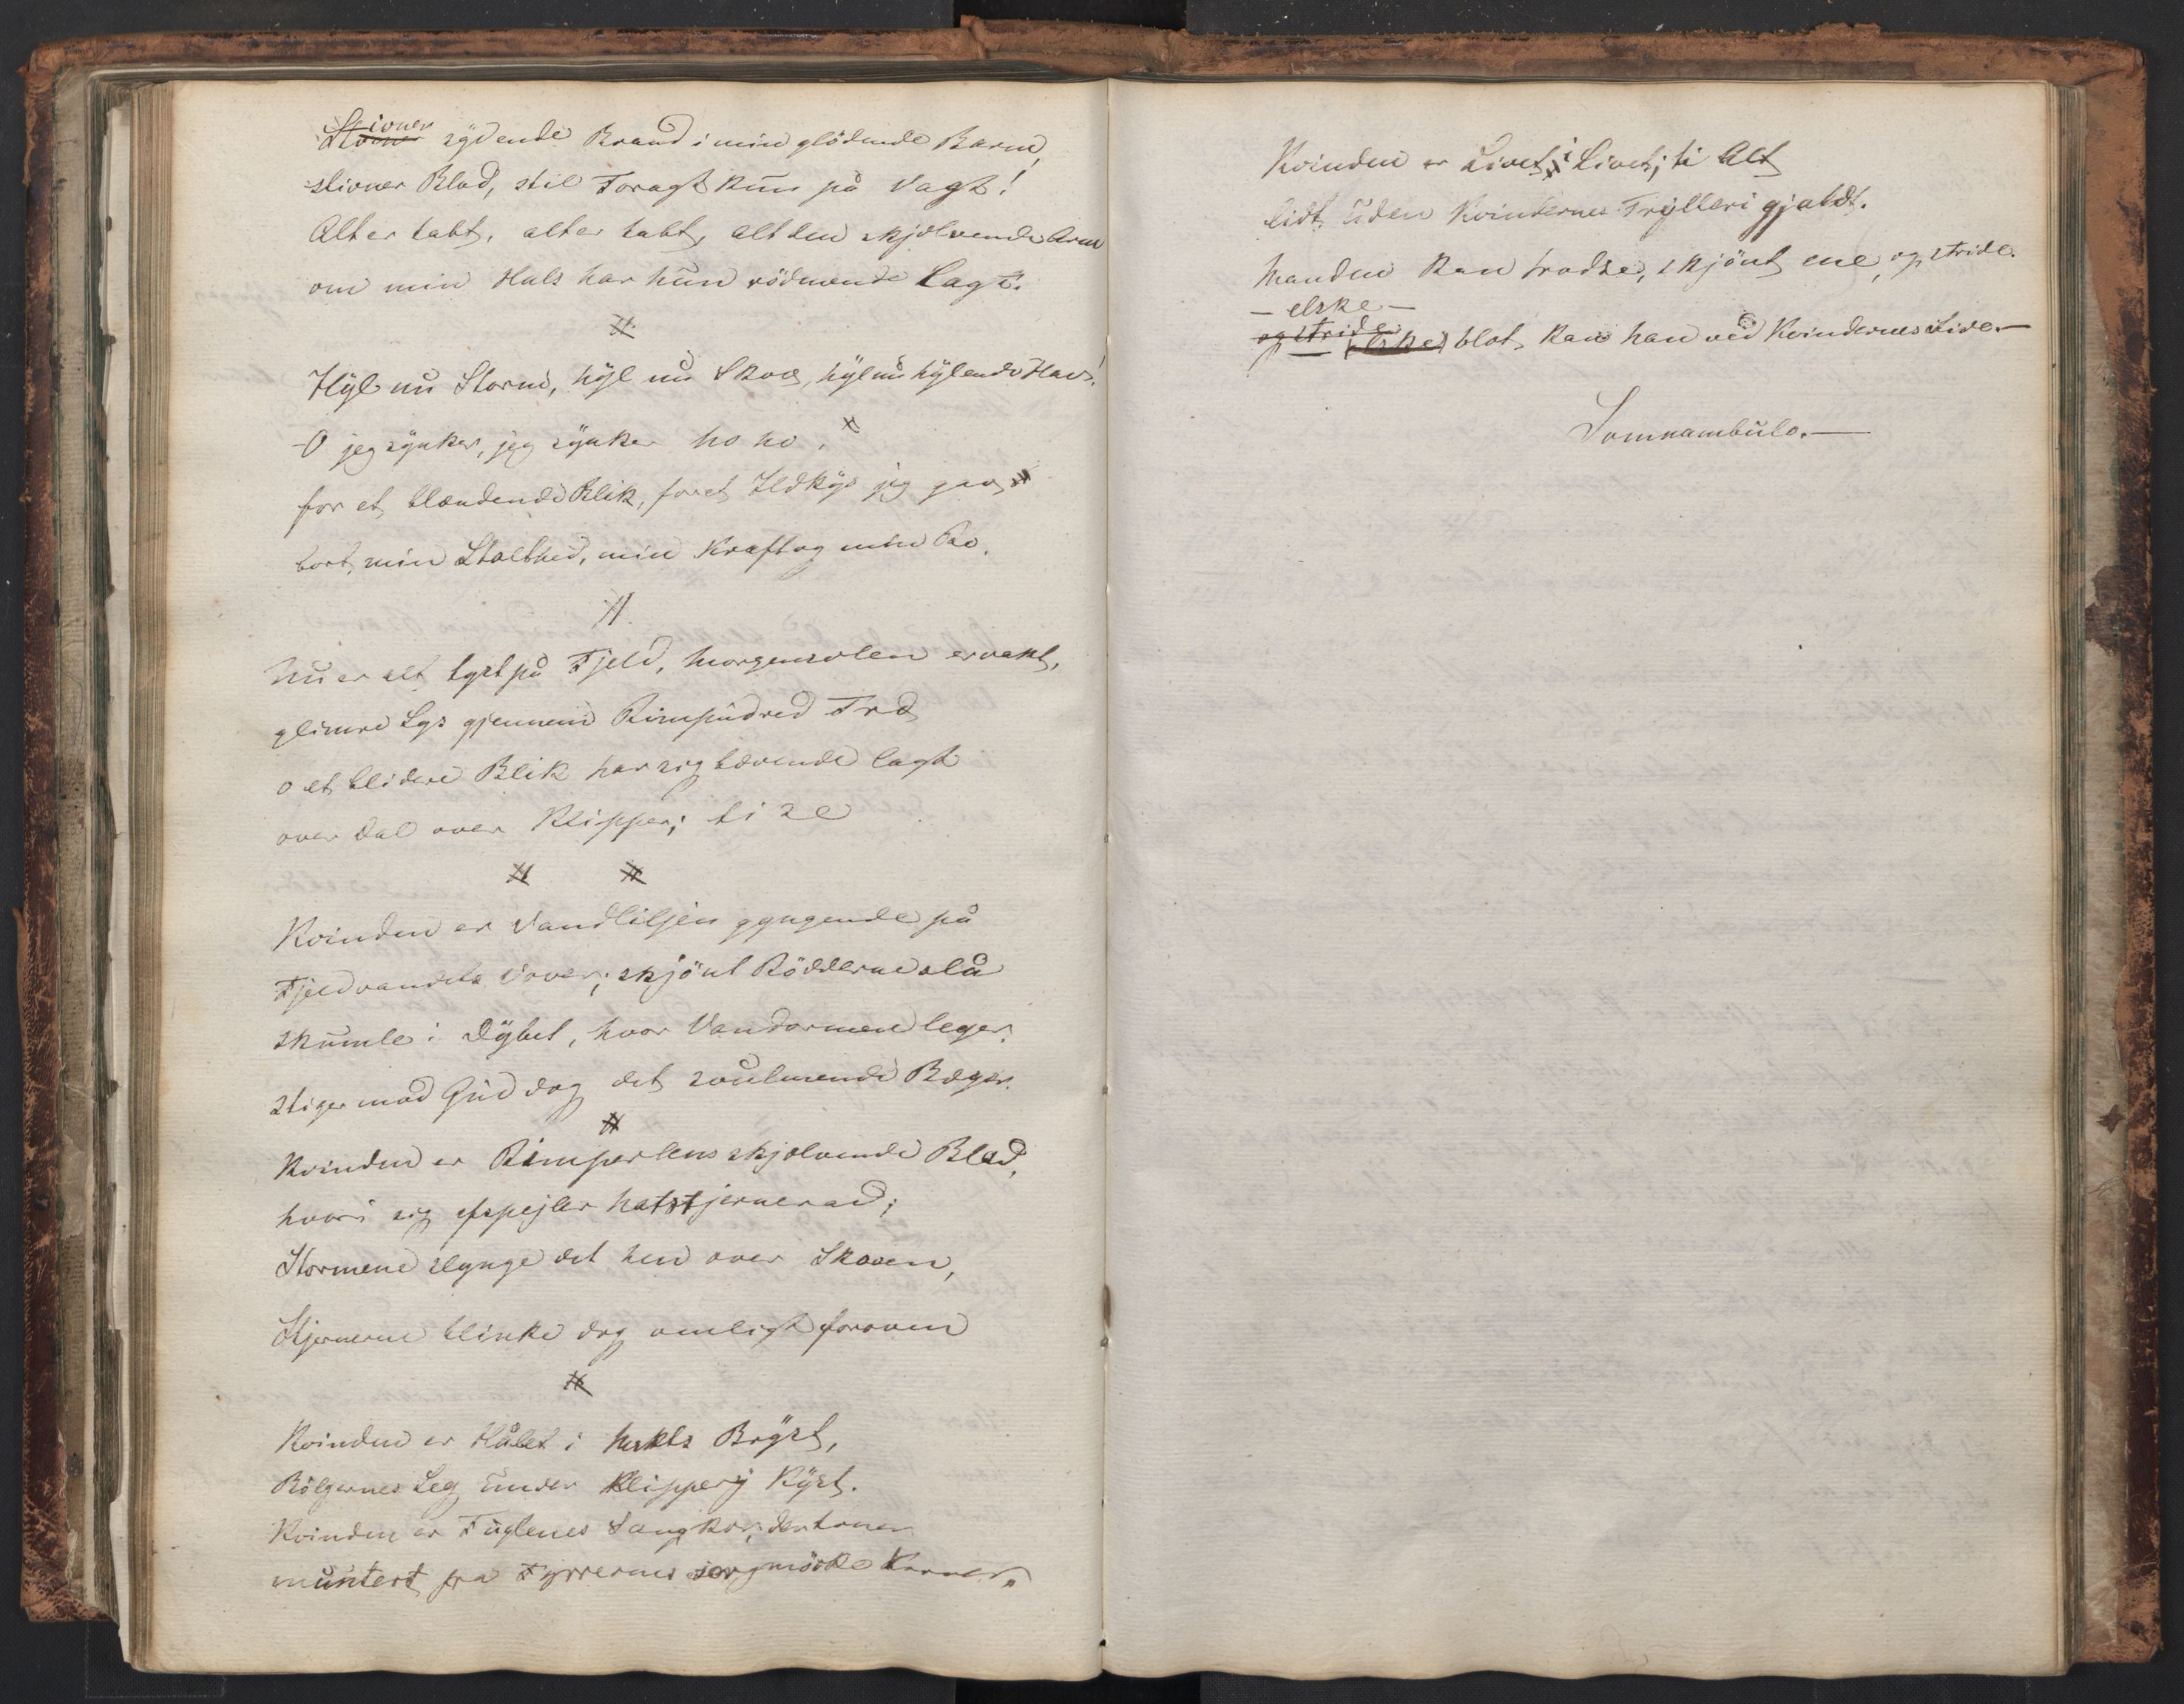 Stivner sydende Brand i min glödende Barm,
stivner Blod, stil Foragt kun på Vagt!
Alt er tabt, alt er tabt, alt den skjælvende Arm
om min Hals har hun rödmende lagt.
Hyl nu Storm, hyl nu Skov, hyl nu hylende Hav!
O jeg synker, jeg synker ho ho,
for et blændende Blik, for et Ildkys jeg gav
bort min Stolthed, min Kraft og min Ro.
Nu er alt tyst på Fjeld, Morgensolen er vakt,
glimre Lys gjennem Rimpudred Træ
o et blidere Blik har sig bævende lagt
over Dal over Klipper; ti se
Kvinden er Vandliljen gyngende på
Fjeldvandets Vover; skjönt Rödderne slå
skumle i Dybet, hvor Vandormen leger,
stiger mod Gud dog det svulmende Bæger.
Kvinden er Rimperlens skjælvende Blad,
hvori sig afspejler Natstjernerad;
Stormene slynge det hen over Skoven,
Stjernerne blinke dog venligt foroven
Kvinden er Håbet i Bryst,
Bölgernes Leg under Klippery Kyst.
Kvinden er Fuglenes Sangkor, der toner
muntert fra Fyrrernes sorgmörke Kroner.
Kvinden er Livet i Livet; ti Alt
lidt uden Kvindernes Trylleri gjaldt.
Manden kan trodse, skjönt ene, og stride.
— elske —
og stride
elske blot kan han ved Kvindernes Side.—
Somnambulo.—